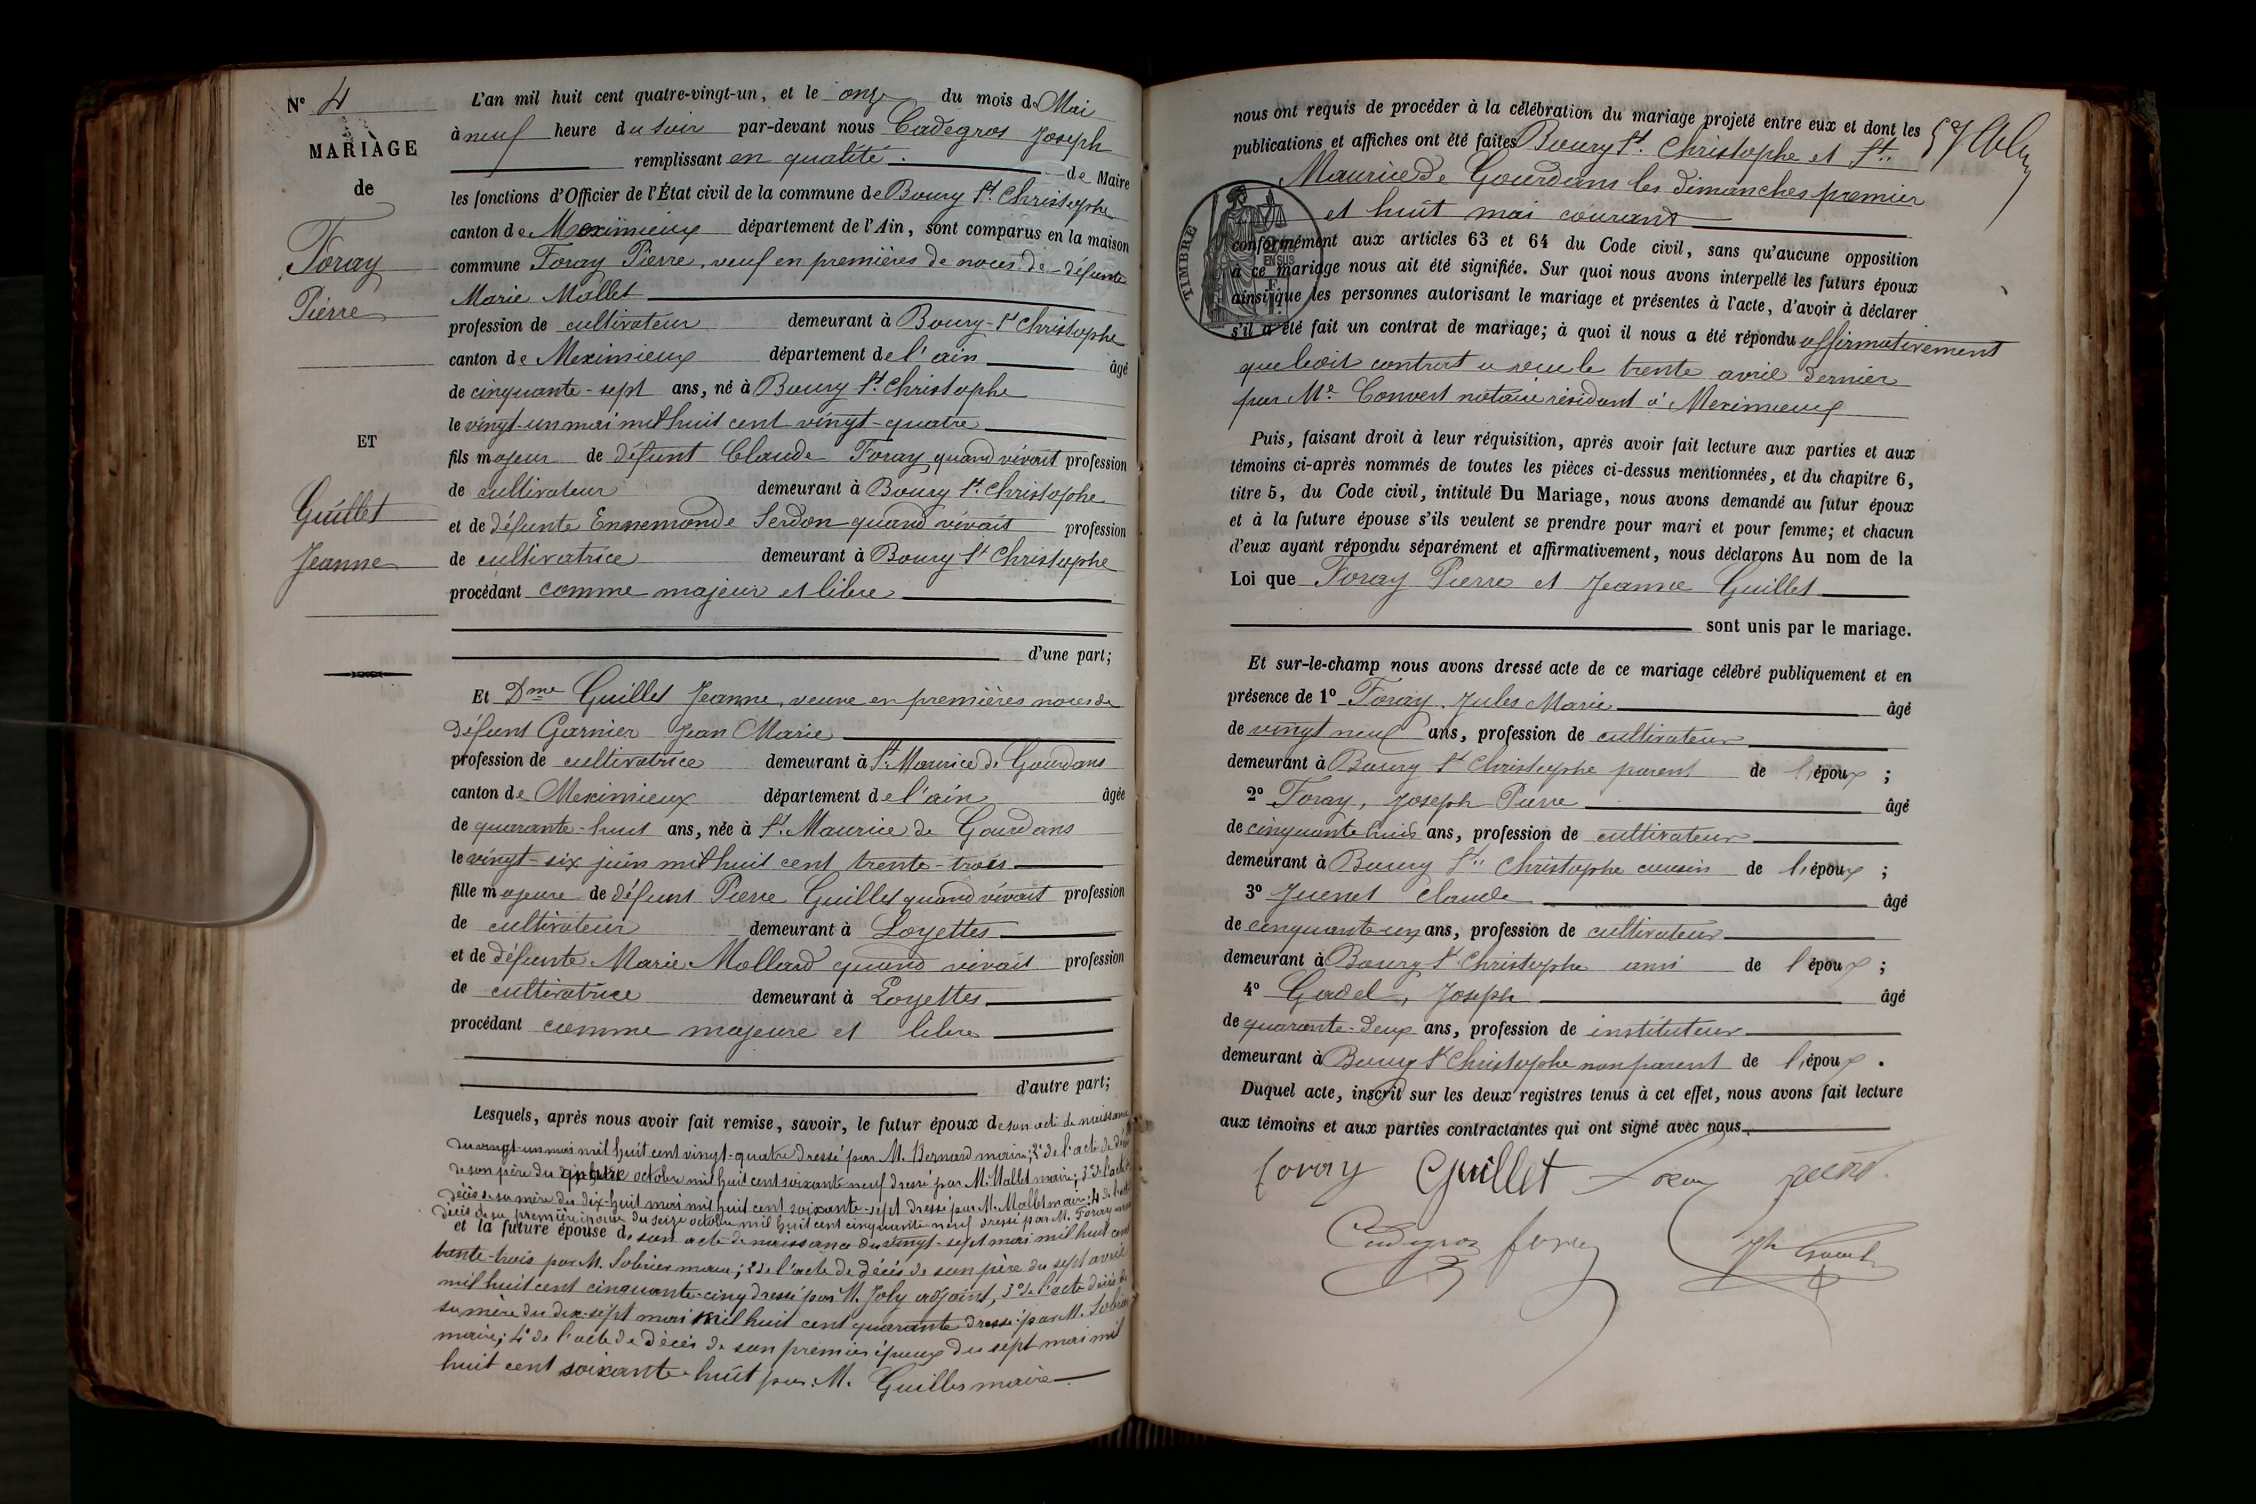 N° 4
MARIAGE
de
Foray
Pierre
ET
Guillet
Jeanne
L'an mil huit cent quatre-vingt-un, et le onze du mois de Mai
à neuf heure du soir par-devant nous Cadegros Joseph
remplissant en qualité de Maire
les fonctions d'Officier de l'État civil de la commune de Bourg St. Christophe
canton de Meximieux département de l'Ain, sont comparus en la maison
commune Foray Pierre, veuf en premières de noces de défunte
Marie Mallet
profession de cultivateur demeurant à Bourg-St Christophe
canton de Meximieux département de l'ain âgé
de cinquante-sept ans, né à Bourg St. Christophe
le vingt-un mai mil huit cent vingt-quatre
fils majeur de défunt Claude Foray quand vivait profession
de cultivateur demeurant à Bourg St. Christophe
et de défunte Ennemonde Serdon quand vivait profession
de cultivatrice demeurant à Bourg St Christophe
procédant comme majeur et libre
d'une part;
Et Dme Guillet Jeanne, veuve en premières noces de
défunt Garnier Jean Marie
profession de cultivatrice demeurant à St. Maurice de Gourdans
canton de Meximieux département de l'ain âgée
de quarante-huit ans, née à St. Maurice de Gourdans
le vingt-six juin mil huit cent trente-trois
fille majeure de défunt Pierre Guillet quand vivait profession
de cultivateur demeurant à Loyettes
et de défunte Marie Mollard quand vivait profession
de cultivatrice demeurant à Loyettes
procédant comme majeure et libre
d'autre part;
Lesquels, après nous avoir fait remise, savoir, le futur époux de son acte de naissance
du vingt-un mai mil huit cent vingt-quatre dressé par M. Bernard maire; 2° de l'acte de décès
de son père du octobre mil huit cent soixante neuf dressé par M. Mallet maire; 3° de l'acte
décès de sa mère du dix-huit mai mil huit cent soixante-sept dressé par M. Mallet maire; 4° de l'acte
décès de sa première épouse du seize octobre mil huit cent cinquante neuf dressé par M. Foray
et la future épouse de son acte de naissance du vingt-sept mai mil huit cent
trente-trois par M. Sobrier maire; 2° de l'acte de décès de son père du sept avril
mil huit cent cinquante-cinq dressé par M. Joly adjoint, 3° de l'acte décès de
sa mère du dix-sept mai mil huit cent quarante dressé par M. Sobrier
maire; 4° de l'acte de décès de son premier époux du sept mai mil
huit cent soixante-huit par M. Guillet maire
nous ont requis de procéder à la célébration du mariage projeté entre eux et dont les
publications et affiches ont été faites Bourg St. Christophe et St.
Maurice de Gourdans les dimanches premier
et huit mai courant
TIMBRE
EN SUS
conformément aux articles 63 et 64 du Code civil, sans qu'aucune opposition
à ce mariage nous ait été signifiée. Sur quoi nous avons interpellé les futurs époux
ainsi que les personnes autorisant le mariage et présentes à l'acte, d'avoir à déclarer
s'il a été fait un contrat de mariage; à quoi il nous a été répondu affirmativement
que ledit contrat a reçu le trente avril dernier
par Me Convert notaire résidant à Meximieux
Puis, faisant droit à leur réquisition, après avoir fait lecture aux parties et aux
témoins ci-après nommés de toutes les pièces ci-dessus mentionnées, et du chapitre 6,
titre 5, du Code civil, intitulé Du Mariage, nous avons demandé au futur époux
et à la future épouse s'ils veulent se prendre pour mari et pour femme; et chacun
d'eux ayant répondu séparément et affirmativement, nous déclarons Au nom de la
Loi que Foray Pierre et Jeanne Guillet
sont unis par le mariage.
Et sur-le-champ nous avons dressé acte de ce mariage célébré publiquement et en
présence de 1° Foray, Jules Marie âgé
de vingt neuf ans, profession de cultivateur
demeurant à Bourg St Christophe parent de l'époux ;
2° Foray, Joseph Pierre âgé
de cinquante huit ans, profession de cultivateur
demeurant à Bourg St. Christophe cousin de l'époux ;
3° Juenet Claude âgé
de cinquante-un ans, profession de cultivateur
demeurant à Bourg St. Christophe ami de l'époux ;
4° Gadel, Joseph âgé
de quarante-deux ans, profession de instituteur
demeurant à Bourg St Christophe non parent de l'époux .
Duquel acte, inscrit sur les deux registres tenus à cet effet, nous avons fait lecture
aux témoins et aux parties contractantes qui ont signé avec nous.
foray Guillet Foray
Cadegros foray